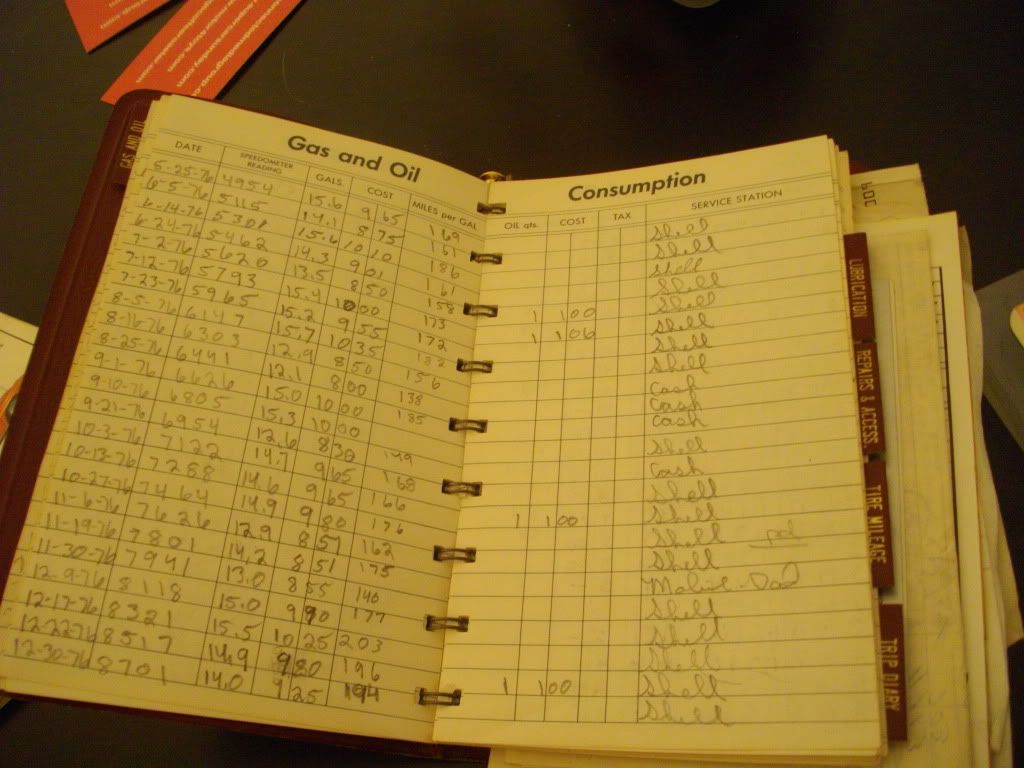 GAS AND OIL
Gas and Oil
DATE SPEEDOMETER READING GALS. COST MILES per GAL.
5-25-76 4954 15.6 9 65 169
6-5-76 5115 14.1 8 75 161
6-14-76 5301 15.6 10 10 186
6-24-76 5462 14.3 9 01 161
7-2-76 5620 13.5 8 50 158
7-12-76 5793 15.4 10 00 173
7-23-76 5965 15.2 9 55 172
8-5-76 6147 15.7 10 35 182
8-16-76 6303 12.9 8 50 156
8-25-76 6441 12.1 8 00 138
9-1-76 6626 15.0 10 00 185
9-10-76 6805 15.3 10 00
9-21-76 6954 12.6 8 30 149
10-3-76 7122 14.7 9 65 168
10-13-76 7288 14.6 9 65 166
10-27-76 7464 14.9 9 80 176
11-6-76 7626 12.9 8 57 162
11-19-76 7801 14.2 8 51 175
11-30-76 7941 13.0 8 55 140
12-9-76 8118 15.0 9 90 177
12-17-76 8321 15.5 10 25 203
12-22-76 8517 14.9 9 80 196
12-30-76 8701 14.0 9 25
Consumption
OIL qts. COST TAX SERVICE STATION
Shell
Shell
Shell
Shell
1 1 00 Shell
1 1 06 Shell
Shell
Shell
Cash
Cash
Cash
Shell
Cash
Shell
1 1 00 Shell
Shell pd
Shell
Mobil-Dad
Shell
Shell
Shell
1 1 00 Shell
Shell
LUBRICATION
REPAIRS & ACCESS.
TIRE MILEAGE
TRIP DIARY